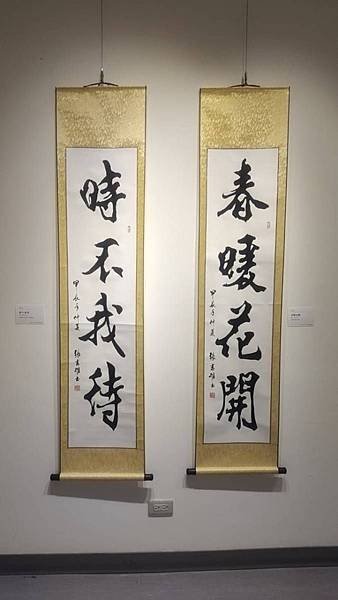 春暖花開
甲辰年仲夏
時不我待
甲辰年仲夏